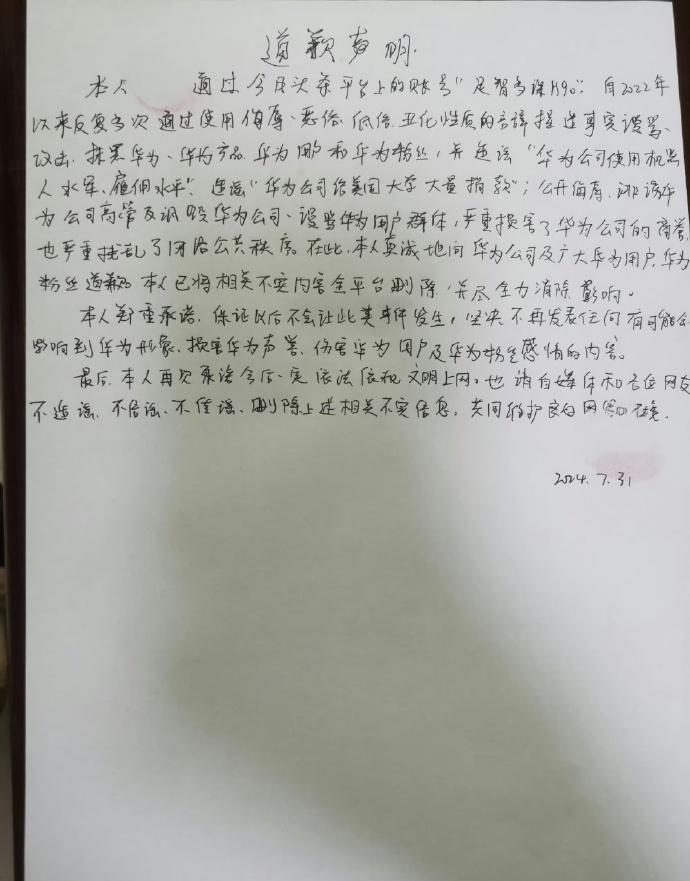 道歉声明.
本人 通过今日头条平台上的账号"足智多谋H90": 自2022年
以来反复多次通过使用侮辱、恶俗、低俗、丑化性质的言辞捏造事实谩骂、
攻击、抹黑华为、华为产品、华为用户和华为粉丝, 并造谣"华为公司使用机器
人水军、雇佣水平". 造谣"华为公司给美国大学大量捐款"; 公开侮辱、诽谤华
为公司高管及讽刺华为公司、谩骂华为用户群体, 严重损害了华为公司的商誉,
也严重扰乱了网络公共秩序. 在此, 本人真诚地向华为公司及广大华为用户, 华为
粉丝道歉. 本人已将相关不实内容全平台删除, 并尽全力消除影响。
本人郑重承诺, 保证以后不会让此类事件发生, 坚决不再发表任何有可能会
影响到华为形象、损害华为声誉、伤害华为用户及华为粉丝感情的内容。
最后, 本人再次承诺今后一定依法依规文明上网. 也请自媒体和各位网友
不造谣、不信谣、不传谣、删除上述相关不实信息, 共同维护良好网络环境.
2024.7.31